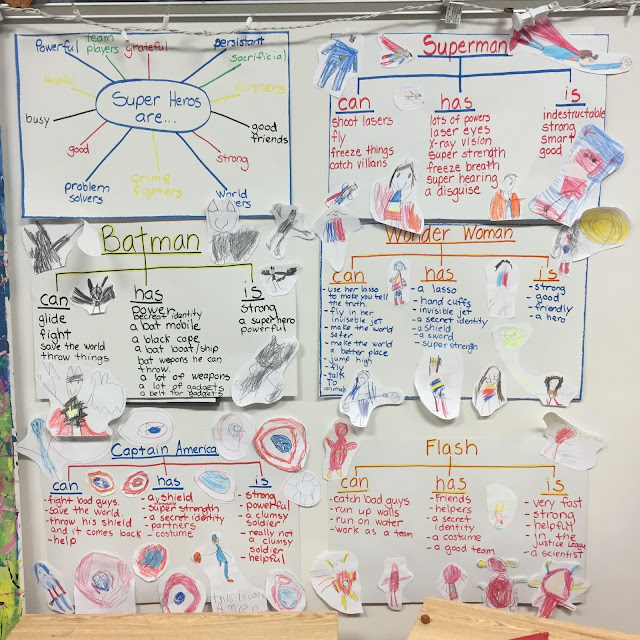 Powerful
team
players
grateful
persistant
sacrificial
helpful
winners
Super Heros
are...
busy
good
friends
good
strong
problem
solvers
crime
fighters
world
Superman
can
shoot lasers
fly
freeze things
catch villans
has
lots of powers
laser eyes
x-ray vision
super strength
freeze breath
super hearing
a disguise
is
indestructable
strong
smart
good
Batman
can
glide
fight
save the world
throw things
has
power
secret identity
a bat mobile
a black cape
a bat boat/ship
bat weapons he can
throw.
a lot of weapons
a lot of gadgets
a belt for gadgets
is
strong
a super hero
powerful
Wonder Woman
can
- use her lasso
to make you tell
the truth.
- fly in her
invisible jet
- make the world
safer
- make the world
a better place
- jump high
- fly
- talk
to
animals
has
- a lasso
- hand cuffs
- invisible jet
- a secret identity
- a shield
- a sword
- super strength
is
- strong
- good
- friendly
- a hero
Captain America
can
- fight bad guys.
- save the world.
- throw his shield
and it comes back
- help
has
- a shield
- super strength
- a secret identity
- partners
- costume
is
- strong
- powerful
- a clumsy
soldier
- really not
a clumsy
soldier
- helpful
Flash
can
- catch bad guys
- run up walls
- run on water
- work as a team
has
- friends
- helpers
- a secret
identity
- a costume
- a good team
is
- very fast
- strong
- helpful
- in the
justice league
- a scientist